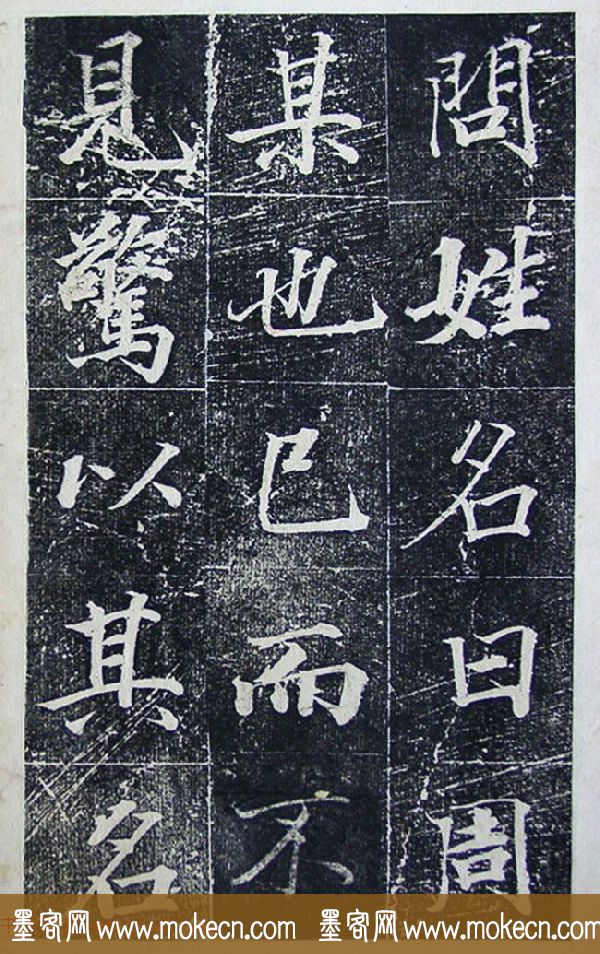 問姓名曰周
某也已而不
見驚以其名
墨客网 www.mokecn.com 墨客网 www.mokecn.com